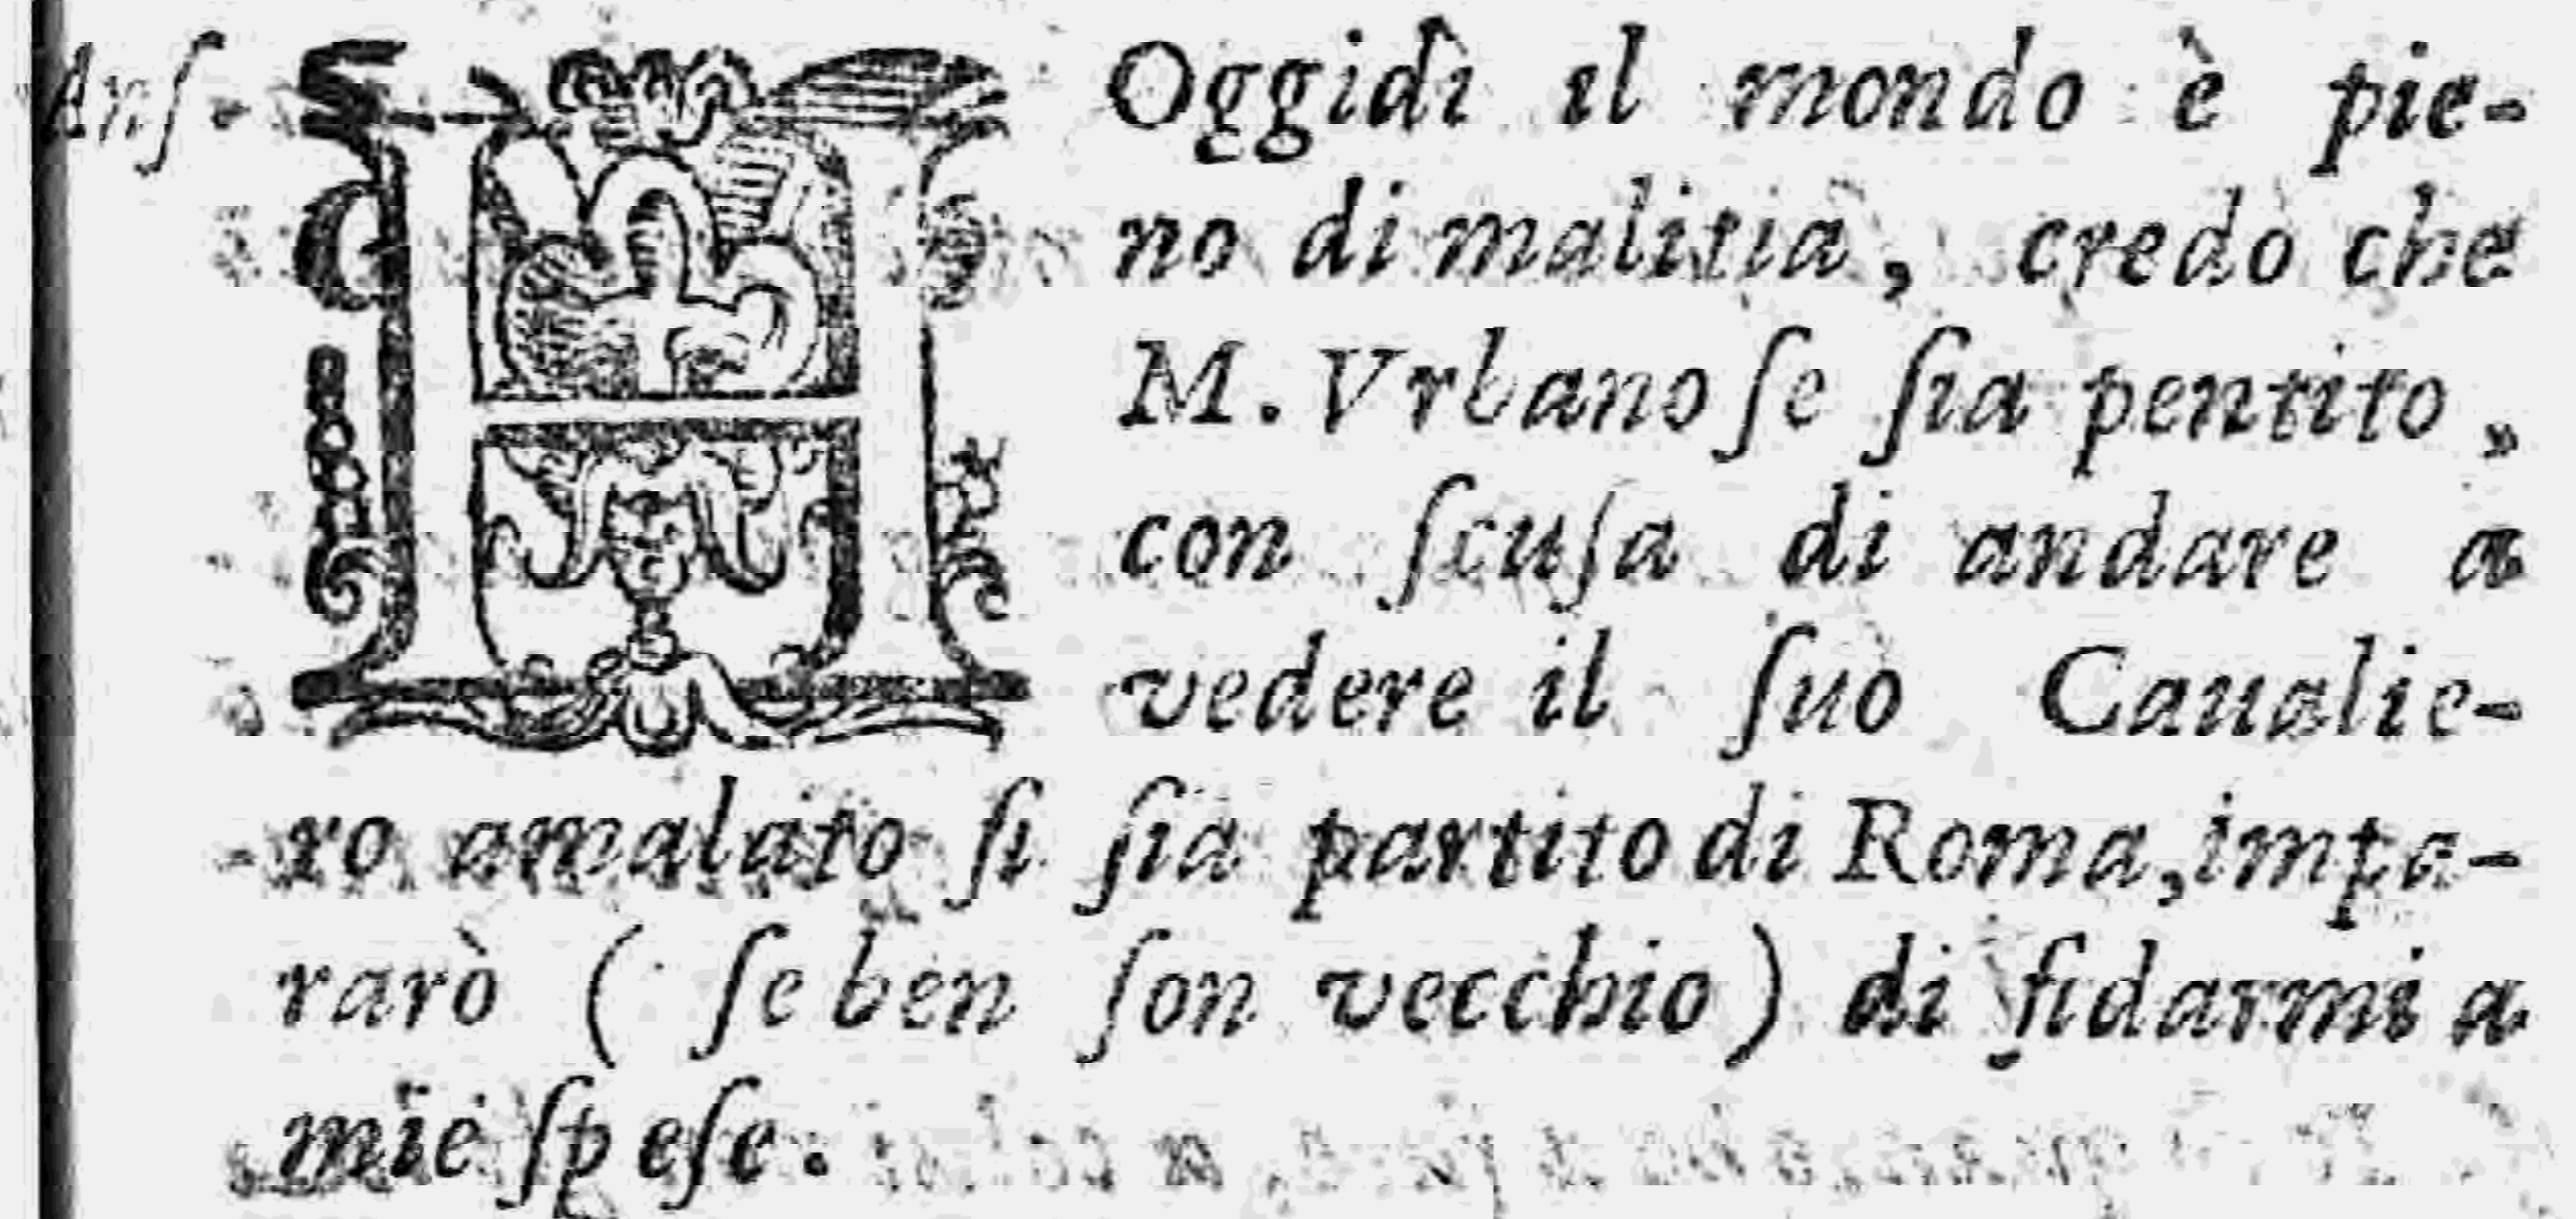 Anſ. HOggidì il mondo è pie-
no di malitia, credo che
M. Vrbano ſe ſia pentito,
con ſcuſa di andare a
vedere il ſuo Caualie-
ro amalato ſi ſia partito di Roma, impa-
rarò ( ſe ben ſon vecchio) di fidarmi a
mie ſpeſe.